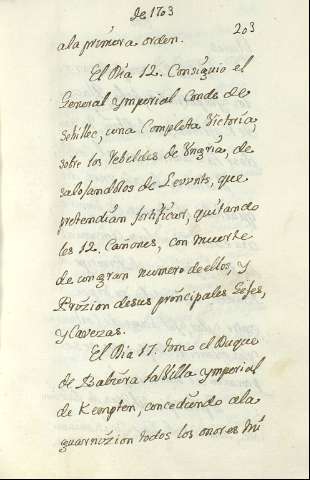 de 1703
203
a la primera orden.
El Dia 12. Consiguio el
General ymperial Conde de
Schlic, una Completa Victoria,
sobre los Rebeldes de Ungria, de
salojandolos de Levvnts, que
pretendian fortificar, quitando
les 12. Cañones, con muerte
de congran numero de ellos, y
Prizion desus principales Gefes,
y Cavezas.
El Dia 17. tomo el Duque
de Babiera la Villa ymperial
de Kempten, concediendo ala
guarnizion todos los onores Mi